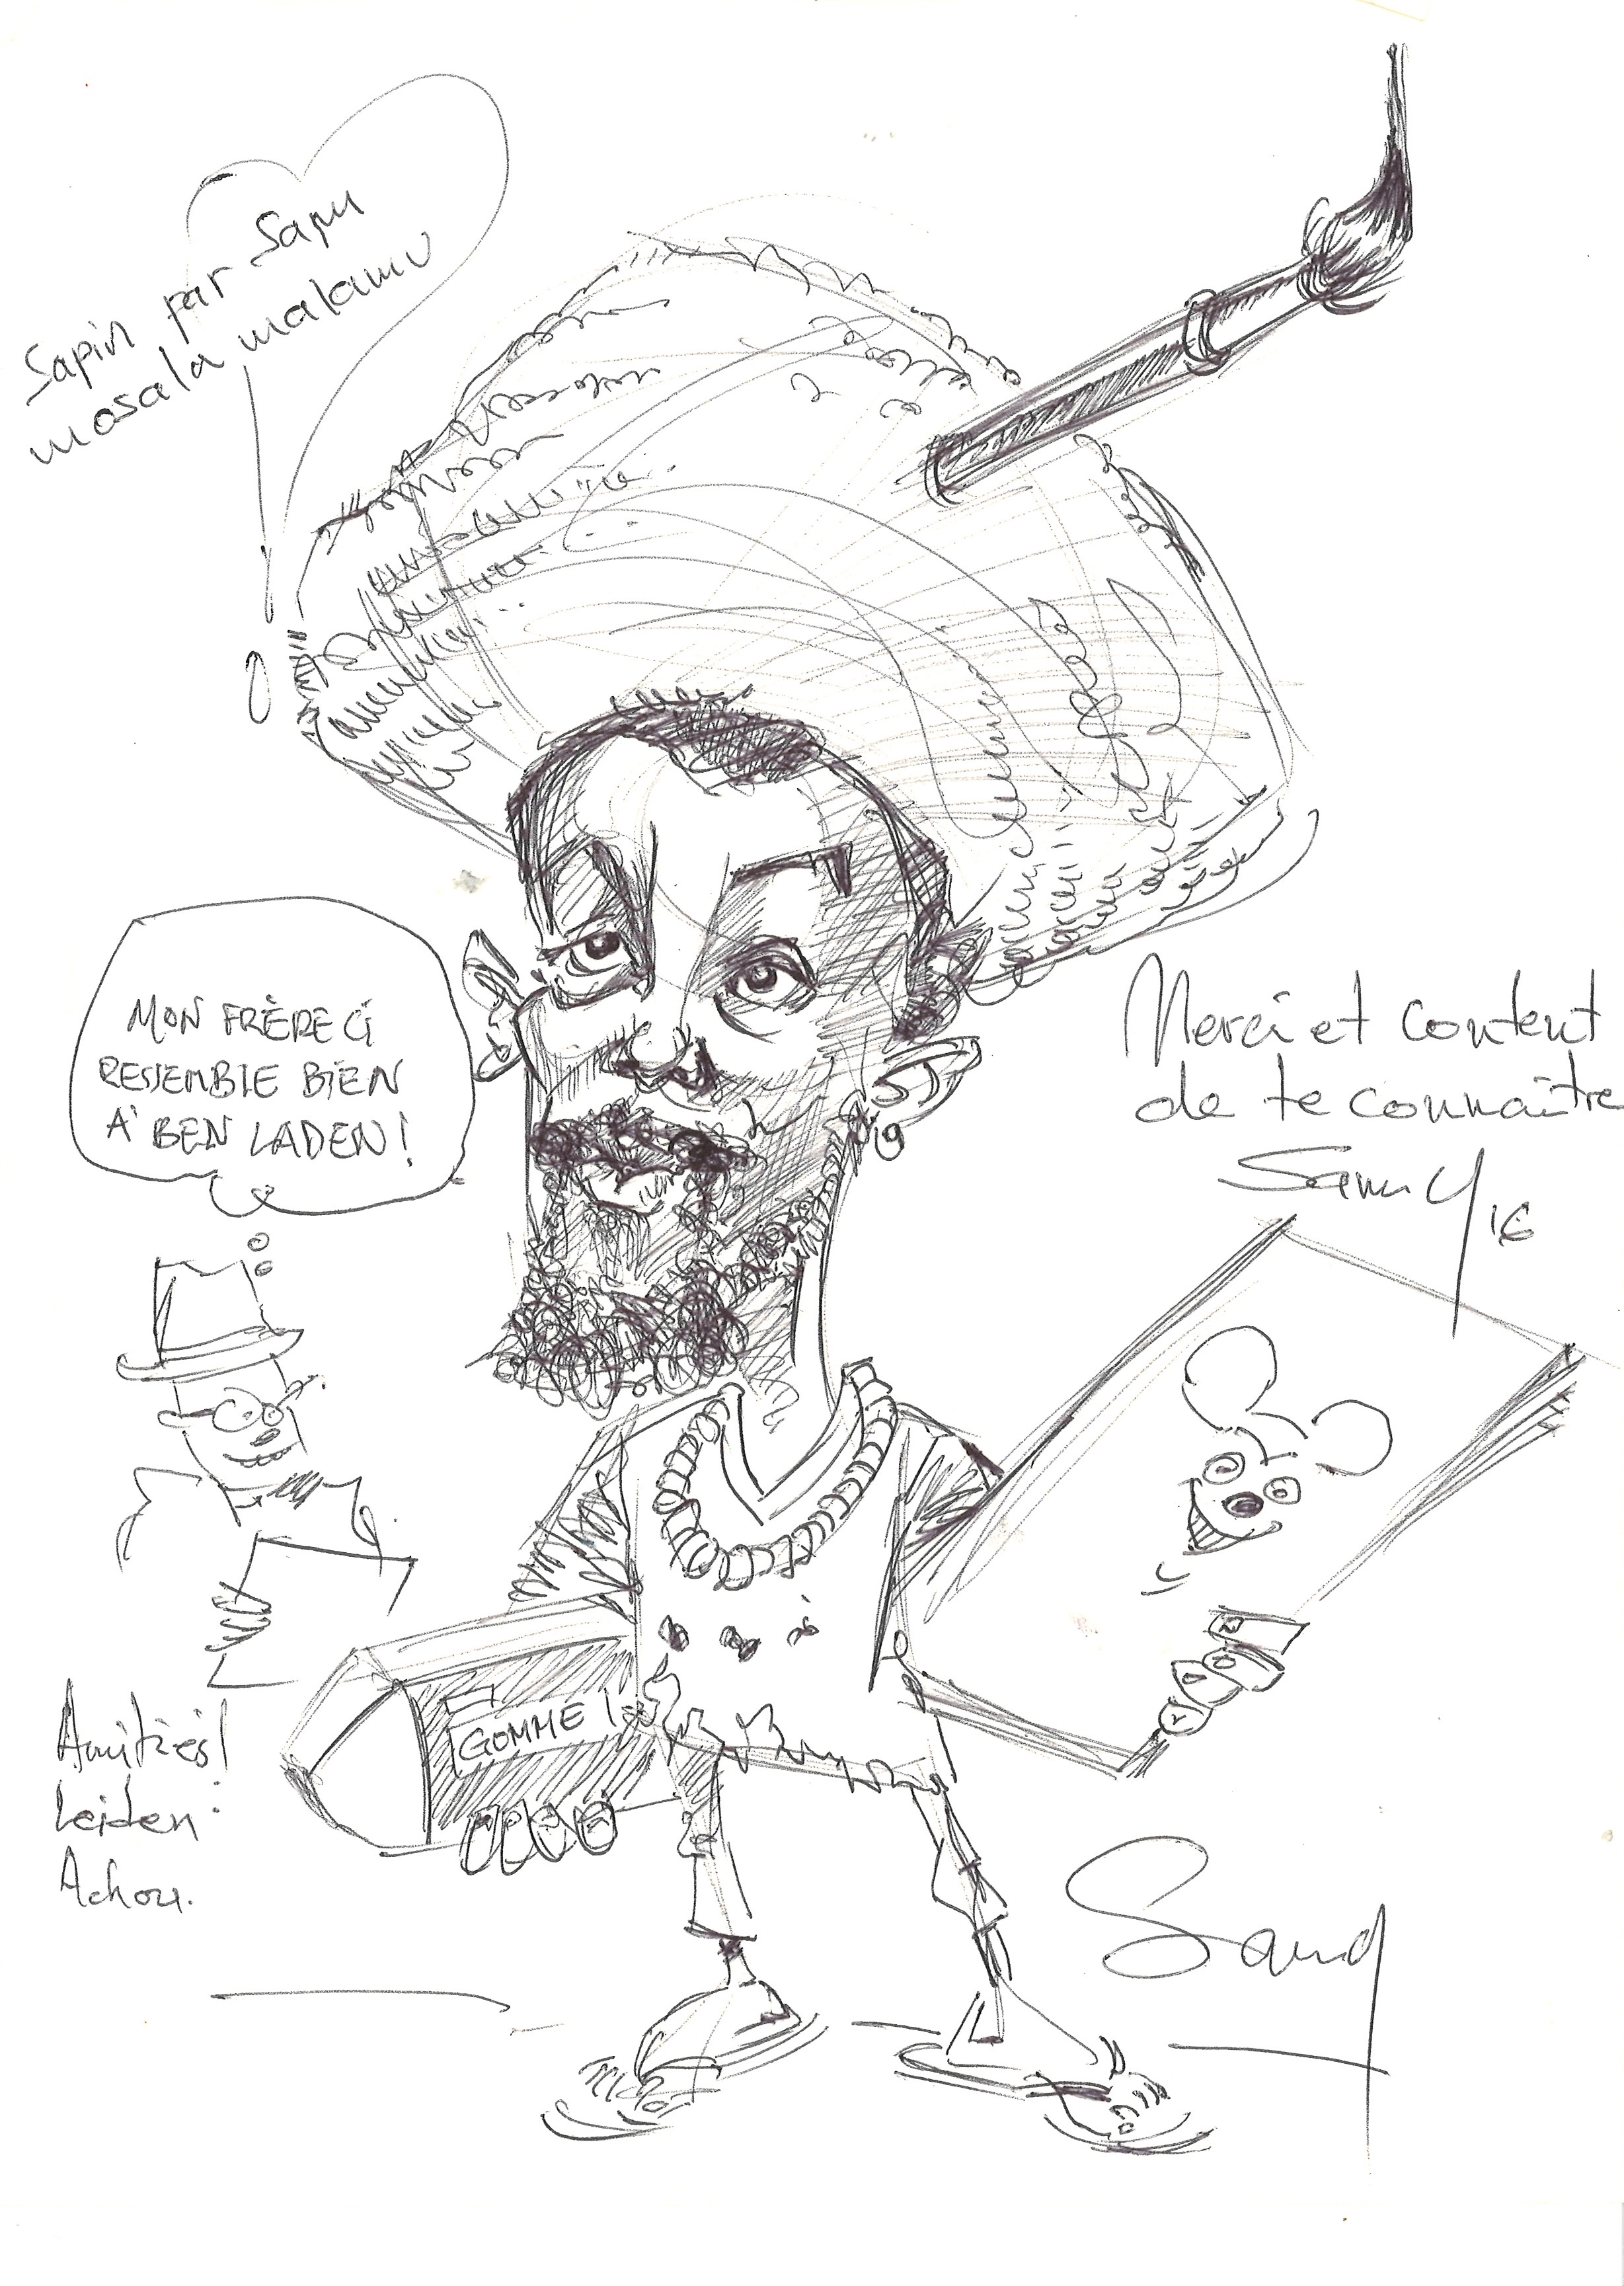 Sapin par Sapin
mosala malamu
MON FRÈRE CI
RESSEMBLE BIEN
A BEN LADEN!
Merci et content
de te connaitre
Samy 16
GOMME!
Amitiés!
Leiden:
Achou.
Samy